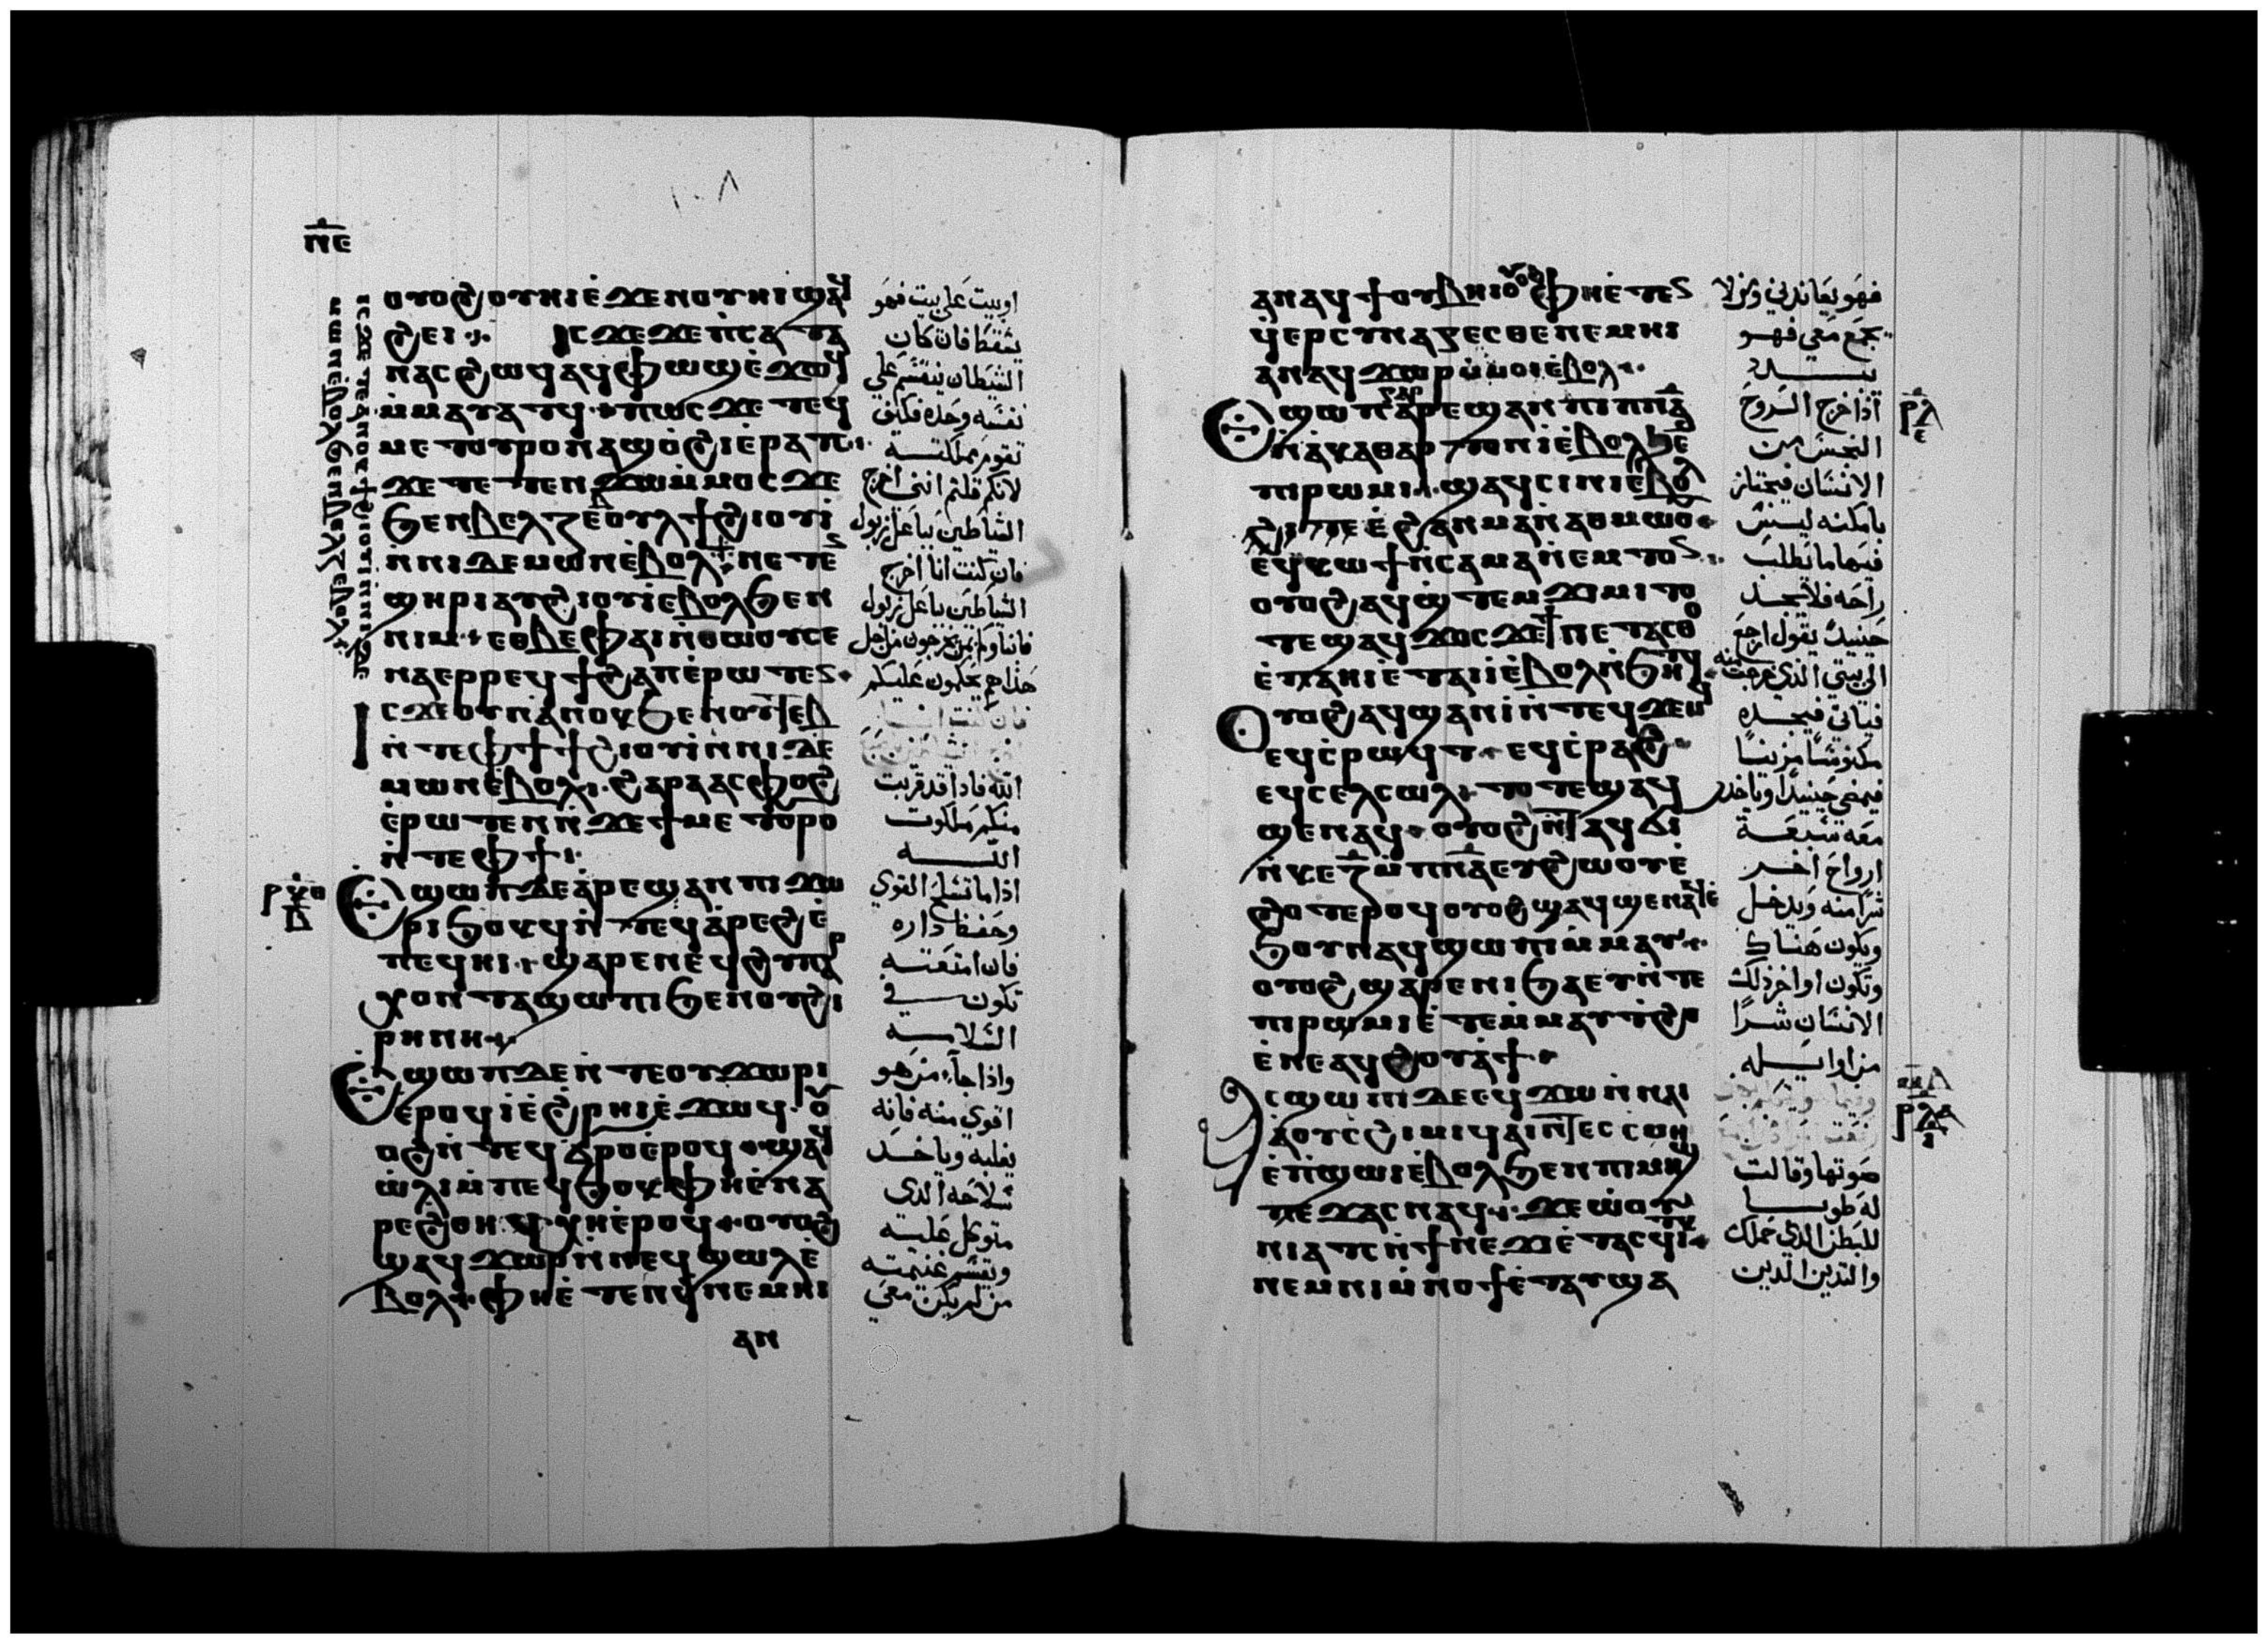 ⲡⲉ
١٠٨
ⲟⲩⲟϩ ⲟⲩⲏⲓ ⲉ̀ϫⲉⲛ ⲟⲩⲏⲓ ϣⲁϥ
ϩⲉⲓ ⁘ ⲓⲥϫⲉ ϫⲉ ⲡ̀ⲥⲁⲧⲁ
ⲛⲁⲥ ϩⲱϥ ⲁϥⲫⲱϣ ⲉ̀ϫⲱϥ
ⲙ̀ⲙⲁⲩⲁⲧϥ ⲡⲱⲥ ϫⲉ ⲧⲉϥ
ⲙⲉⲧⲟⲩⲣⲟ ⲛⲁϣⲟ̀ϩⲓ ⲉ̀ⲣⲁⲧⲥ
ϫⲉ ⲧⲉⲧⲉⲛϫⲱ ⲙ̀ⲙⲟⲥ ϫⲉ
ϧⲉⲛ ⲃⲉⲗⲍⲉⲟⲩⲗ ϯϩⲓⲟⲩⲓ
ⲛ̀ⲛⲓⲇⲉⲙⲱⲛ ⲉ̀ⲃⲟⲗ
ⲓⲥϫⲉ ⲇⲉ ⲁⲛⲟⲕ ϯϩⲓⲟⲩⲓ ⲛ̀ⲛⲓⲇⲉ
ⲙⲱⲛ ⲉ̀ⲃⲟⲗ ϧⲉⲛ ⲃⲉⲗⲍⲉⲃⲟⲩⲗ
ⲛⲉⲧⲉⲛ
ϣⲏⲣⲓ ⲁⲩϩⲓⲟⲩⲓ ⲉ̀ⲃⲟⲗ ϧⲉⲛ
ⲛⲓⲙ ⲉⲑⲃⲉ ⲫⲁⲓ ⲛ̀ⲑⲱⲟⲩ ⲥⲉ
ⲛⲁⲉⲣⲣⲉϥϯϩⲁⲡ ⲉ̀ⲣⲱⲧⲉⲛ
ⲓⲥϫⲉ ⲟⲩⲛ ⲁ̀ⲛⲟⲕ ϧⲉⲛ ⲟⲩⲧⲏⲃ
ⲛ̀ⲧⲉ ⲫϯ ϯϩⲓⲟⲩⲓ ⲛ̀ⲛⲓⲇⲉ
ⲙⲱⲛ ⲉ̀ⲃⲟⲗ ϩⲁⲣⲁ ⲁⲥⲫⲟϩ
ⲉ̀ⲣⲱⲧⲉⲛ ⲛ̀ϫⲉ ϯⲙⲉⲧⲟⲩⲣⲟ
ⲛ̀ⲧⲉ ⲫϯ
ⲣⲕⲑ
ⲃ
ⲉϣⲱⲡ ⲇⲉ ⲁ̀ⲣⲉϣⲁⲛ ⲡⲓϫⲱ
ⲣⲓ ϧⲟⲕϥ ⲛ̀ⲧⲉϥⲁ̀ⲣⲉϩ ⲉ̀
ⲡⲉϥⲏⲓ ϣⲁⲣⲉ ⲛⲉϥϩⲩⲡⲁⲣ
ⲭⲟⲛⲧⲁ ϣⲱⲡⲓ ϧⲉⲛ ⲟⲩϩⲓ
ⲣⲏⲛⲏ
ⲉϣⲱⲡ ⲇⲉ ⲛ̀ⲧⲉ ⲟⲩϫⲱⲣⲓ
ⲉⲣⲟϥ ⲓ̀ ⲉ̀ϩⲣⲏⲓ ⲉ̀ϫⲱϥ ⲟⲩ
ⲟϩ ⲛ̀ⲧⲉϥϭ̀ⲣⲟ ⲉ̀ⲣⲟϥ ϣⲁϥ
ⲱ̀ⲗⲓ ⲙ̀ⲡⲉϥϧⲟⲕ ⲫⲏ ⲉ̀ⲛⲁ
ⲣⲉ ϩⲑⲏϥ ⲭⲏ ⲉ̀ⲣⲟϥ ⲟⲩⲟϩ
ϣⲁϥϫⲱⲣ ⲛ̀ⲛⲉϥϣⲱⲗ ⲉ̀
ⲃⲟⲗ ⲫⲏ ⲉ̀ⲧⲉⲛϥ̀ ⲛⲉⲙⲏⲓ
ⲁⲛ
او بيت على بيت فهو
يسقط فان كان
الشيطان ينقسم على
نفسه وحده فكيف
تقوم مملكته
لانكم قلتم انني اخرج
الشياطين بباعل زبول
فان كنت انا اخرج
الشياطين بباعل زبول
فابناوكم بمن يخرجون من اجل
هذا هم يحكمون عليكم
فان كنت انا
الله فاذا قد قربت
منكم ملكوت
الله
اذا ما تسلح القوي
وحفظ داره
فان امتعته
تكون في
السلامه
واذا جاء من هو
اقوي منه فانه
يغلبه وياخد
سلاحه الدي
متوكل عليه
ويقسم غنيمته
من لم يكن معي
ⲁⲛ ⲁϥϯ ⲟⲩⲃⲏⲓ ⲟⲩⲟϩ ⲫⲏ ⲉ̀ⲧⲉⲛ
ϥ̀ⲉⲣⲥⲩⲛⲁⲅⲉⲥⲑⲉ ⲛⲉⲙⲏⲓ
ⲁⲛ ⲁϥϫⲱⲣ ⲙ̀ⲙⲟⲓ ⲉ̀ⲃⲟⲗ
ⲣⲗ
ⲉ
ⲉϣⲱⲡ ⲅⲁⲣ ⲁⲣⲉϣⲁⲛ ⲡⲓⲡⲛⲁ
ⲛ̀ⲁ̀ⲕⲁⲑⲁⲣⲧⲟⲛ ⲓ̀ ⲉ̀ⲃⲟⲗ ϧⲉⲛ
ⲡⲓⲣⲱⲙⲓ ϣⲁϥⲥⲓⲛⲓ ⲉ̀ⲃⲟⲗ
ϩⲓⲧⲉⲛ ϩⲁⲛⲙⲁ ⲛ̀ⲁⲑⲙⲱⲟⲩ
ⲉϥⲕⲱϯ ⲛ̀ⲥⲁ ⲙⲁⲛ̀ⲉⲙⲧⲟⲛ
ⲟⲩⲟϩ ⲁϥϣⲧⲉⲙϫⲓⲙⲓ ⲧⲟ
ⲧⲉ ϣⲁϥϫⲟⲥ ϫⲉ ϯⲛⲉⲧⲁⲥⲑⲟ
ⲉ̀ⲡⲁⲏⲓ ⲉ̀ⲧⲁⲓⲓ̀ ⲉ̀ⲃⲟⲗ ⲛ̀ϧⲏⲧϥ
ⲟⲩⲟϩ ⲁϥϣⲁⲛⲓ̀ ⲛ̀ⲧⲉϥϫⲉⲙϥ
ⲉϥⲥ̀ⲣⲱϥⲧ ⲉϥⲥ̀ⲣⲁϩ
ⲉϥⲥⲉⲗⲥⲱⲗ ⲧⲟⲧⲉ ϣⲁϥ
ϣⲉⲛⲁϥ ⲟⲩⲟϩ ⲛ̀ⲧⲁϥϭⲓ
ⲛ̀ⲕⲉⲍ ⲙ̀ⲡⲛⲁ ⲉⲩϩⲱⲟⲩ ⲉ̀
ϩⲟⲧⲉⲣⲟϥ ⲟⲩⲟϩ ϣⲁϥϣⲉⲛⲁϥ ⲉ̀
ϧⲟⲩⲛ ⲁϥϣⲱⲡⲓ ⲙ̀ⲙⲁⲩ
ⲟⲩⲟϩ ϣⲁⲣⲉ ⲛⲓϧⲁⲉⲩ ⲛ̀ⲧⲉ
ⲡⲓⲣⲱⲙⲓ ⲉ̀ⲧⲉⲙⲙⲁⲩ ϩⲟ
ⲉ̀ⲛⲉ ⲁϥϩⲟⲩⲁ̀ϯ
ⲣⲗⲁ
ⲁⲥϣⲱⲡⲓ ⲇⲉ ⲉϥϫⲱ ⲛ̀ⲛⲁⲓ
ⲁ̀ ⲟⲩⲥ̀ϩⲓⲙⲓ ϥⲁⲓ ⲛ̀ⲧⲉⲥⲥⲙⲏ
ⲉ̀ⲡ̀ϣⲱⲓ ⲉ̀ⲃⲟⲗ ϧⲉⲛ ⲡⲓⲙⲏϣ
ⲡⲉϫⲁⲥ ⲛⲁϥ ϫⲉ ⲱ̀ⲟⲩ
ⲛⲓⲁⲧⲥ ⲛ̀ϯⲛⲉϫⲓ ⲉ̀ⲧⲁⲥϥⲓⲧⲕ
ⲛⲉⲙ ⲛⲓⲙ̀ⲛⲟϯ ⲉ̀ⲧⲁⲩϣⲁ
فهو يعاندني ومن لا
يجمع معي فهو
يبدد
اذا خرج الروح
النجس من
الانسان فيجتاز
بامكنه ليس
فيها ما يطلب
راحه فلا يجد
حينيد يقول ارجع
الى بيتي الذي خرجت منه
فياتي فيجده
مكنوسا مزينا
فيمضي حينيدا وياخد
معه سبعة
ارواح اخر
شرا منه ويدخل
ويكون هناك
وتكون اواخر ذلك
الانسان شرا
من اوايله
صوتها وقالت
له طوبا
للبطن الدي حملك
والتديين الدين